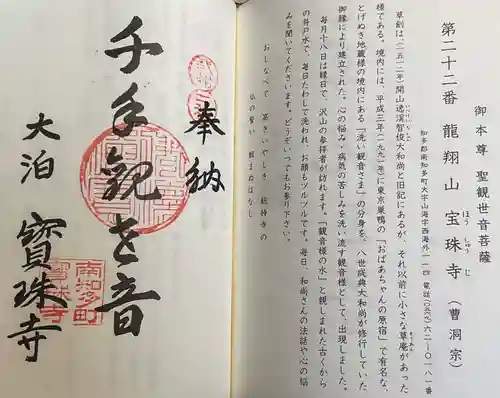 御本尊 聖観世音菩薩
第二十二番 龍翔山 宝珠寺（曹洞宗）
ほうしゅじ
知多郡南知多町大字山海字西海外一一四 電話（〇五六九）六二一〇一八一番
草創は、（一五一二年）開山逵渓智俊大和尚と旧記にあるが、それ以前に小さな草庵があった
様である。境内には、平成三年（一九九一年）に東京巣鴨の「おばあちゃんの原宿」で有名な、
とげぬき地蔵様の境内にある「洗い観音さま」の分身を、八世成典大和尚が修行していた
御縁により建立された。心の悩み・病気の苦しみを洗い流す観音様として、出現しました。
毎月十八日は縁日で、沢山の参拝者が訪れます。「観音様の水」と親しまれた古くから
の井戸水で、毎日たわしで洗われ、お顔もツルツルです。毎日、和尚さんの法話や心の悩
みを聞いてくださいます。どうぞいつでもお参り下さい。
おしなべて 高きいやしき 総持寺の
仏の誓い 頼まぬはなし
奉納
千手観世音
大泊 寳珠寺
南知多町